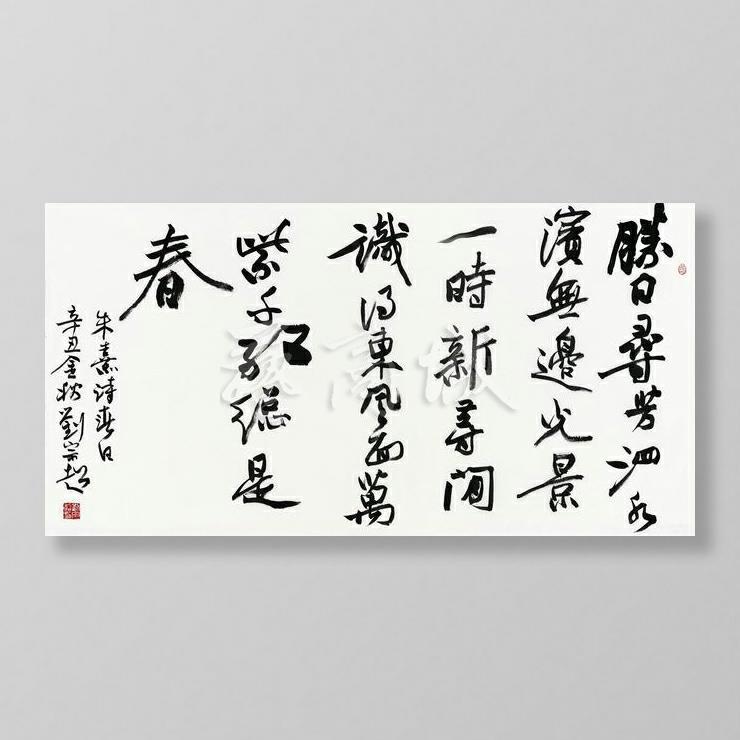 勝日尋芳泗水
濱無邊光景
一時新等閒
識得東風面萬
紫千紅總是
春
朱熹詩春日
辛丑金秋劉宗超